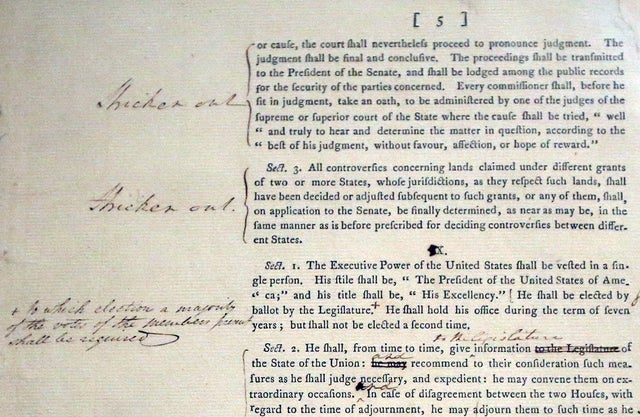 [ 5 ]
or cauſe, the court ſhall nevertheleſs proceed to pronounce judgment. The
judgment ſhall be final and concluſive. The proceedings ſhall be tranſmitted
to the Preſident of the Senate, and ſhall be lodged among the public records
for the ſecurity of the parties concerned. Every commiſſioner ſhall, before he
ſit in judgment, take an oath, to be adminiſtered by one of the judges of the
ſupreme or ſuperior court of the State where the cauſe ſhall be tried, " well
" and truly to hear and determine the matter in queſtion, according to the
" beſt of his judgment, without favour, affection, or hope of reward."
Stricken out
Sect. 3. All controverſies concerning lands claimed under different grants
of two or more States, whoſe juriſdictions, as they reſpect ſuch lands, ſhall
have been decided or adjuſted ſubſequent to ſuch grants, or any of them, ſhall,
on application to the Senate, be finally determined, as near as may be, in the
ſame manner as is before preſcribed for deciding controverſies between differ-
ent States.
Stricken out.
X.
Sect. 1. The Executive Power of the United States ſhall be veſted in a ſin-
gle perſon. His ſtile ſhall be, " The Preſident of the United States of Ame-
" ca;" and his title ſhall be, " His Excellency." [ He ſhall be elected by
ballot by the Legiſlature.+ He ſhall hold his office during the term of ſeven
years ; but ſhall not be elected a ſecond time.
+ to which election a majority
of the votes of the members present
shall be required
to the Legislature
Sect. 2. He ſhall, from time to time, give information to the Legiſlature of
and
the State of the Union: he may recommend to their conſideration ſuch mea-
ſures as he ſhall judge neceſſary, and expedient: he may convene them on ex-
and
traordinary occaſions. In caſe of diſagreement between the two Houſes, with
regard to the time of adjournment, he may adjourn them to ſuch time as he